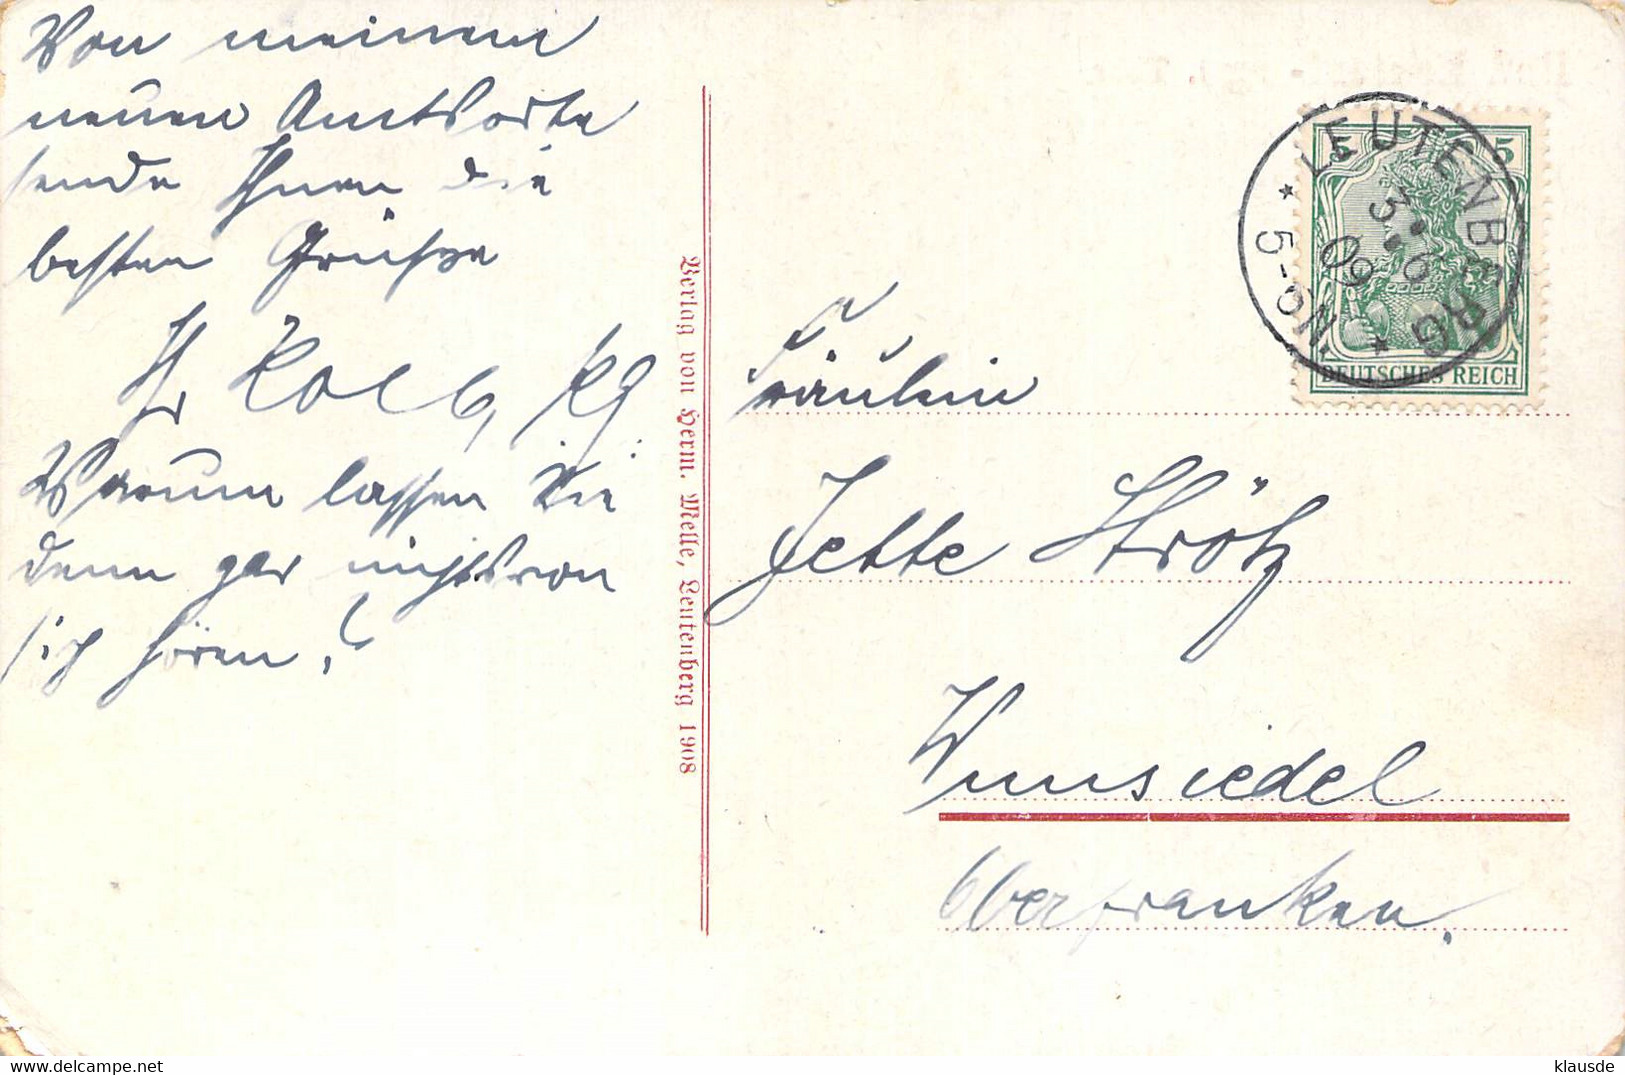 Von meinem
neuen Amtsorte
sende Ihnen die
besten Grüsze
Ihr Kolb,
Warum lassen Sie
denn gar nichts von
sich hören?
Verlag von Herm. Melle, Leutenberg 1908
LEUTENBERG
3.6.
09
5-6N.
5 5
DEUTSCHES REICH
Fräulein
Jette Ströhz
Wunsiedel
Oberfranken.
klausde